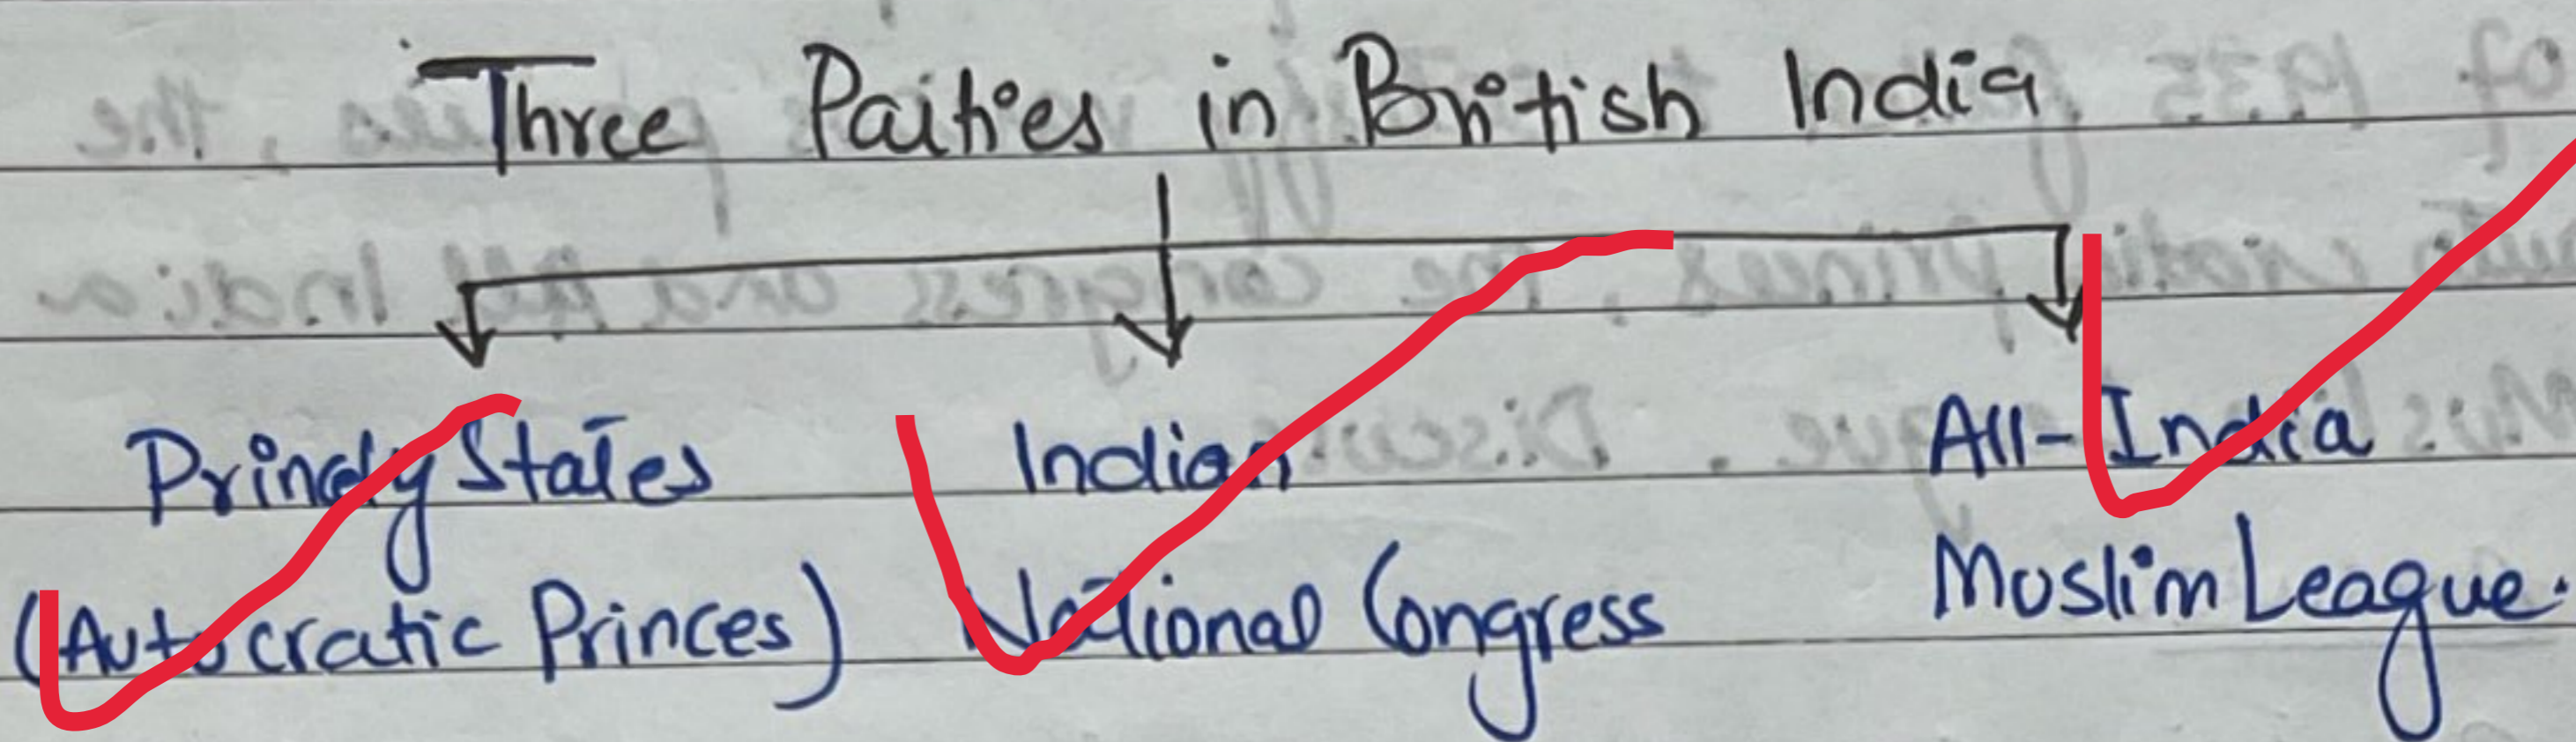 Three Parties in British India
Princely States
(Autocratic Princes)
Indian
National Congress
All-India
Muslim League.